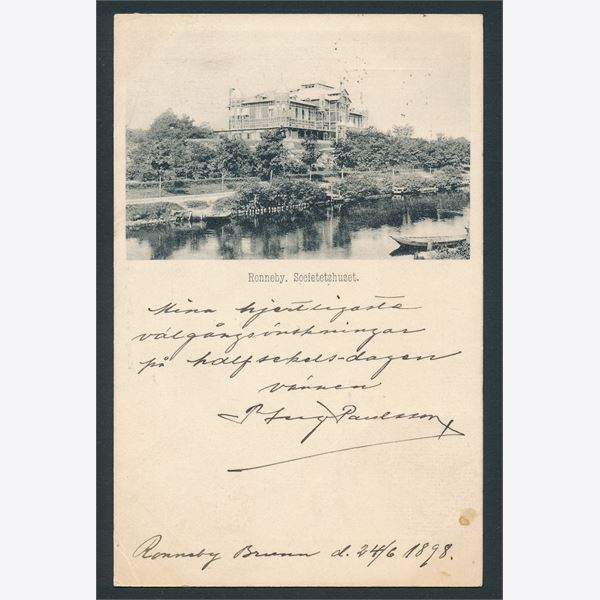 Ronneby. Societetshuset.
Mina hjertligaste
välgångsönskningar
på halfsekels-dagen
vännen
Paulsson
Ronneby Brunn d. 24/6 1898.